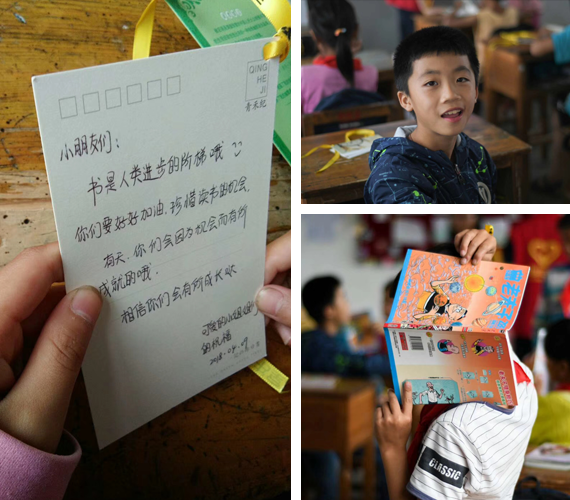 QING
HE
JI
青禾纪
小朋友们：
书是人类进步的阶梯哦
你们要好好加油，珍惜读书的机会
有天，你们会因为机会而有所
成就的哦.
相信你们会有所成长呦
可爱的小姐姐们
的祝福
2018.04.07
老夫子
CLASSIC